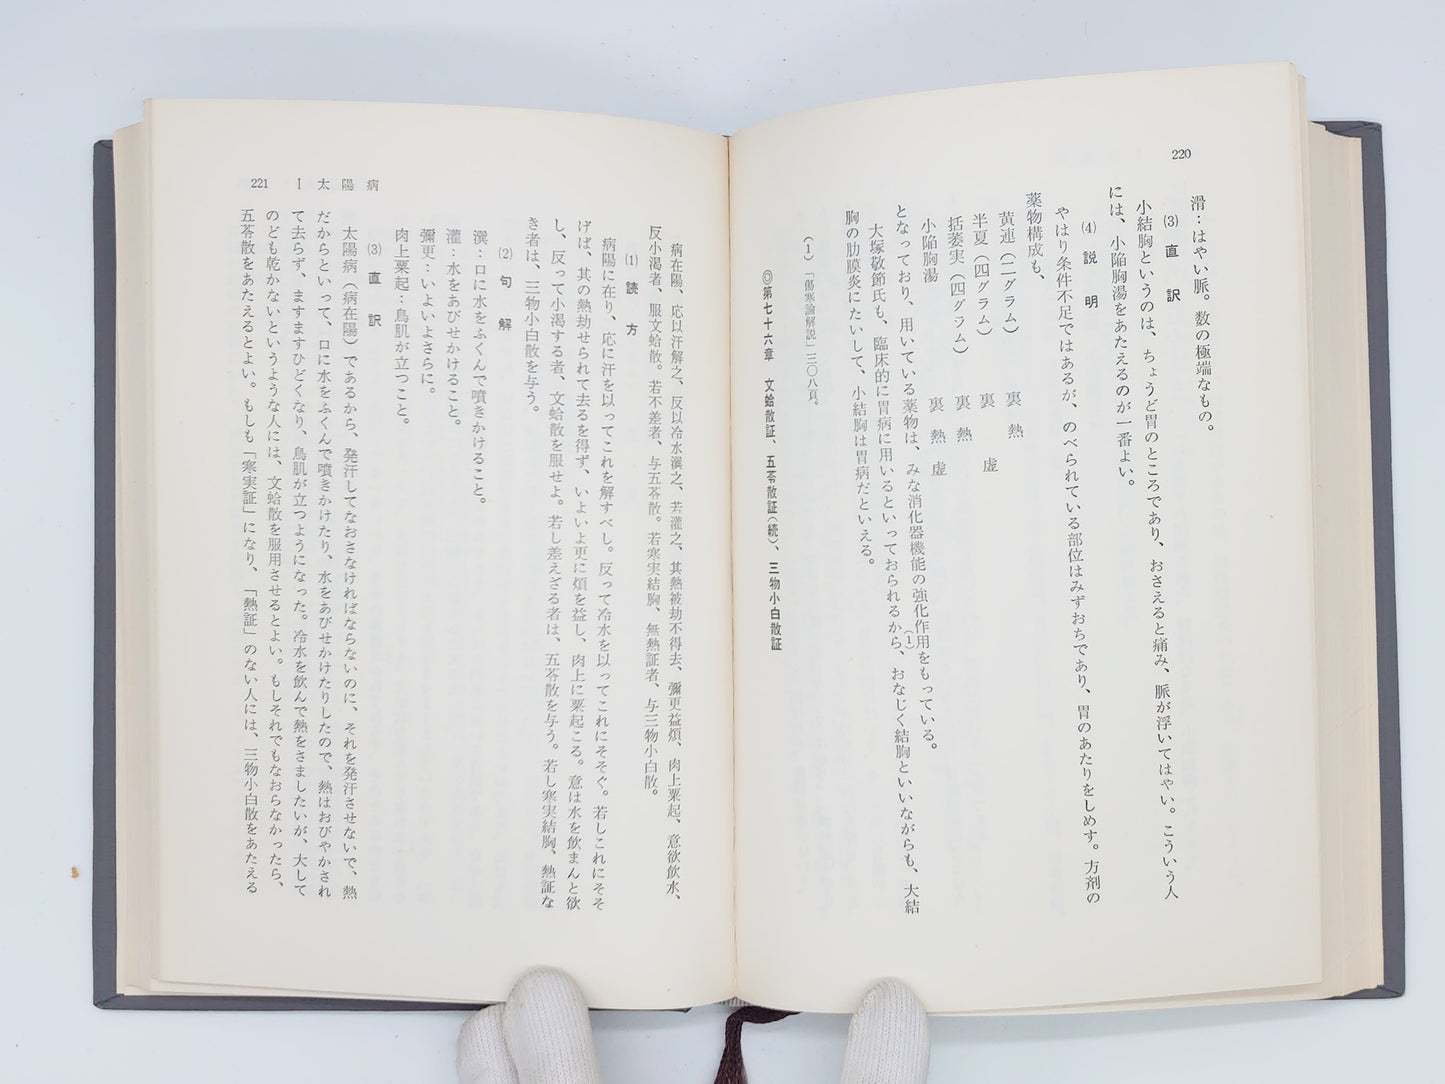 220
滑：はやい脈。数の極端なもの。
(3) 直訳
小結胸というのは、ちょうど胃のところであり、おさえると痛み、脈が浮いてはやい。こういう人
には、小陥胸湯をあたえるのが一番よい。
(4) 説明
やはり条件不足ではあるが、のべられている部位はみずおちであり、胃のあたりをしめす。方剤の
薬物構成も、
黄連（二グラム） 裏熱
半夏（四グラム） 裏虚
栝蔞実（四グラム） 裏熱
小陥胸湯 裏熱虚
となっており、用いている薬物は、みな消化器機能の強化作用をもっている。
大塚敬節氏も、臨床的に胃病に用いるといっておられる(1)から、おなじく結胸といいながらも、大結
胸の肋膜炎にたいして、小結胸は胃病だといえる。
(1) 「傷寒論解説」三〇八頁。
◎第七十六章 文蛤散証、五苓散証（続）、三物小白散証
病在陽、応以汗解之、反以冷水潠之、若灌之、其熱被劫不得去、彌更益煩、肉上粟起、意欲飲水、
反小渇者、服文蛤散。若不差者、与五苓散。若寒実結胸、無熱証者、与三物小白散。
(1) 読方
病陽に在り、応に汗を以ってこれを解すべし。反って冷水を以ってこれにそそぐ。若しこれにそそ
げば、其の熱劫せられて去るを得ず、いよいよ更に煩を益し、肉上に粟起こる。意は水を飲まんと欲
し、反って小渇する者、文蛤散を服せよ。若し差えざる者は、五苓散を与う。若し寒実結胸、熱証な
き者は、三物小白散を与う。
(2) 句解
潠：口に水をふくんで噴きかけること。
灌：水をあびせかけること。
彌更：いよいよさらに。
肉上粟起：鳥肌が立つこと。
(3) 直訳
太陽病（病在陽）であるから、発汗してなおさなければならないのに、それを発汗させないで、熱
だからといって、口に水をふくんで噴きかけたり、水をあびせかけたりしたので、熱はおびやかされ
て去らず、ますますひどくなり、鳥肌が立つようになった。冷水を飲んで熱をさましたいが、大して
のども乾かないというような人には、文蛤散を服用させるとよい。もしそれでもなおらなかったら、
五苓散をあたえるとよい。もしも「寒実証」になり、「熱証」のない人には、三物小白散をあたえる
221 I 太陽病